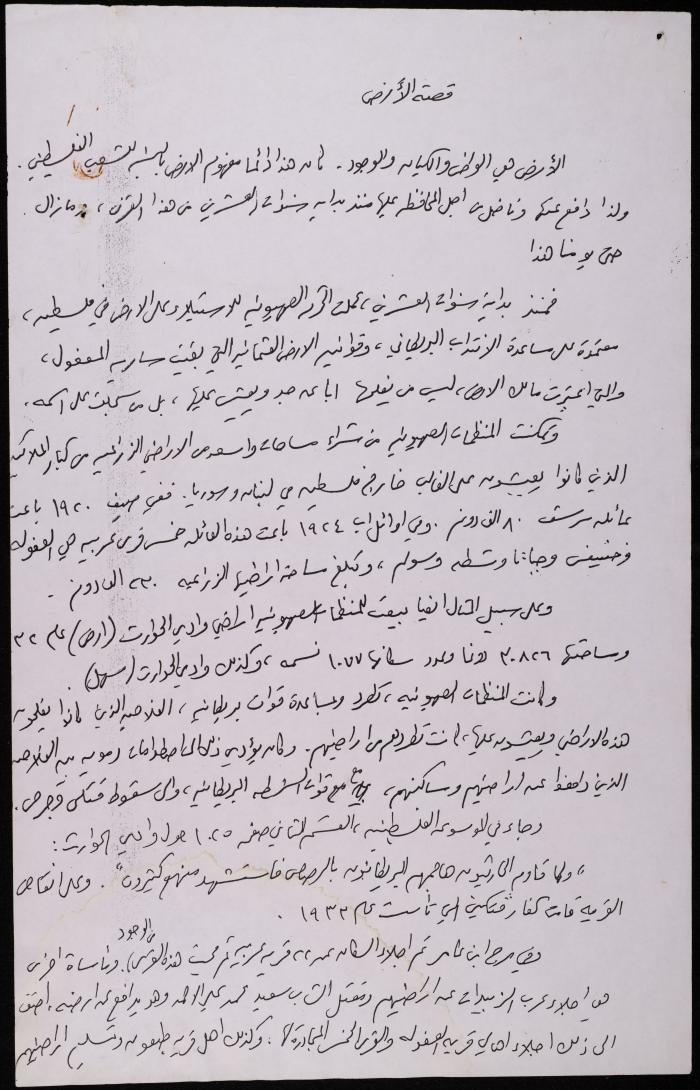 قصة الأرض
الأرض هي الوطن والكيان والوجود. كان هذا دائما مفهوم الارض بالنسبة للشعب الفلسطيني.
ولذا دافع عنها وناضل من اجل المحافظه عليها منذ بداية سنوات العشرين من هذا القرن، وما زال
حتى يومنا هذا
فمنذ بداية سنوات العشرين، عملت الحركه الصهيونيه للاستيلاء على الارض في فلسطين،
معتمدة على مساعدة الانتداب البريطاني، وقوانين الارض العثمانيه التي بقيت سارية المفعول،
والتي اعتبرت مالك الارض، ليس من يفلحها ابا عن جد ويعيش عليها، بل من سجلت على اسمه.
وتمكنت المنظمات الصهيونيه من شراء مساحات واسعه من الاراضي الزراعيه من كبار الملاكين
الذين كانوا يعيشون على الغالب خارج فلسطين في لبنان وسوريا. ففي صيف ١٩٢٠ باعت
عائله سرسق ٨٠ الف دونم. وفي اوائل اب ١٩٢٤ باعت هذه العائله خمس قرى عربيه هي العفوله
وخنيفس وجباتا وشطه وسولم، وتبلغ مساحة اراضيها الزراعيه الف دونم.
وعلى سبيل المثال ايضا بيعت للمنظمات الصهيونيه اراضي وادي الحوارث (ارض) عام ٣٢
ومساحتها ٣٠٨٢٦ دونما وعدد سكانها ١٠٧٧ نسمه، وكذلك وادي الحوارث (سهل)
وكانت المنظمات الصهيونيه، تطرد وبمساعدة قوات بريطانيه، الفلاحين الذين كانوا يفلحون
هذه الاراضي ويعيشون عليها، كانت تطردهم من اراضيهم. وكان يؤدي ذلك الى اصطدامات دمويه بين الفلاحين
الذين دافعوا عن اراضيهم ومساكنهم، مع قوات الشرطه البريطانيه، والى سقوط قتلى وجرحى.
وجاء في الموسوعه الفلسطينيه، القسم الثاني صفحه ١٠٢٥ حول وادي الحوارث:
"ولما قاوم الحارثيون هاجمهم البريطانيون بالرصاص فاستشهد منهم كثيرون". وعلى انقاض
القريه قامت كفار التي تأسست عام ١٩٣٣.
وفي مرج ابن عامر تم اجلاء السكان عن قريه عربيه ثم محيت هذه القرى من الوجود. ومأساة اخرى
هي اجلاء عرب الزبيدات عن اراضيهم ومقتل الشاب سعيد محمد علي الاحمد وهو يدافع عن ارضه. اضف
الى ذلك اجلاء اهالي قرية العفوله والقرى الخمس المجاورة لها. وكذلك اهل قرية طبعون وتسليم اراضيهم